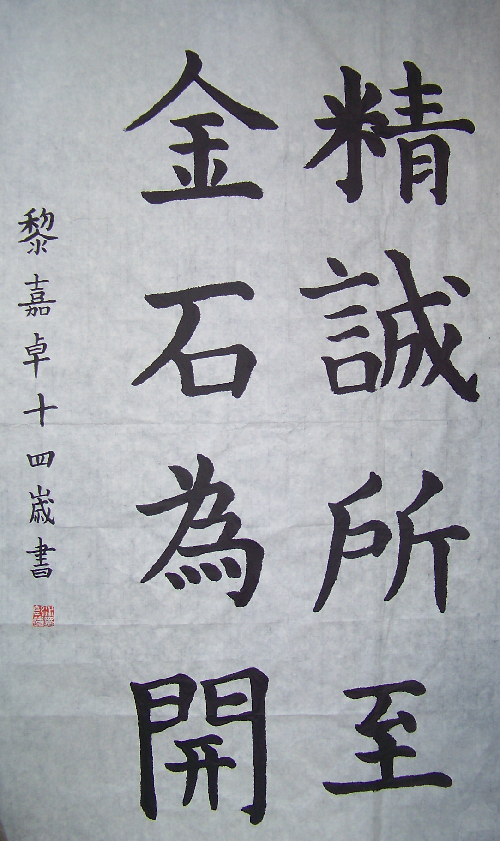 精誠所至
金石為開
黎嘉卓十四歲書